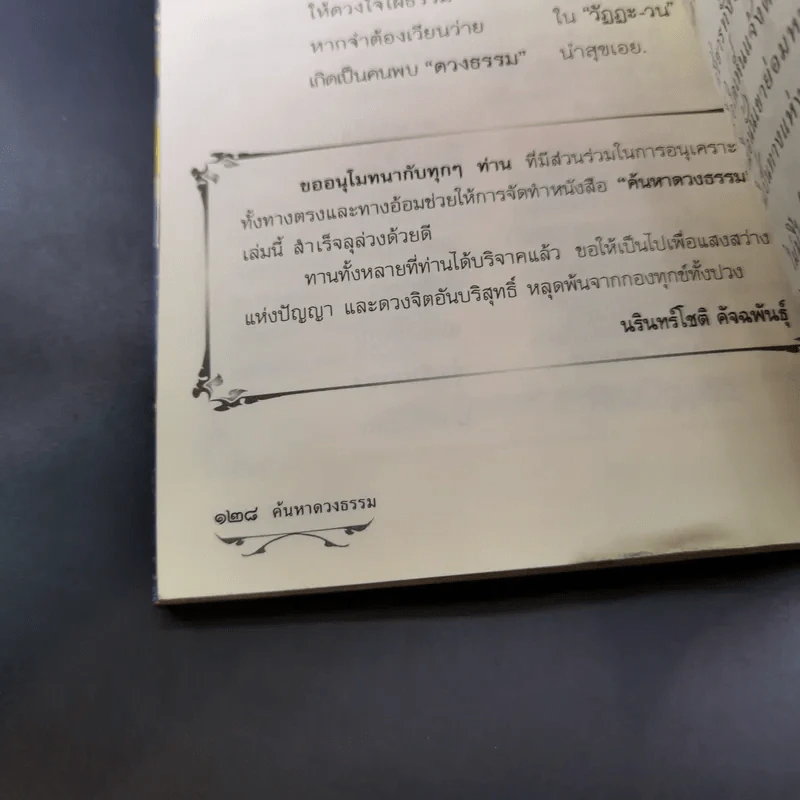 ให้ดวงใจใฝ่ธรรม
หากจำต้องเวียนว่าย ใน “วัฏฏะ-วน”
เกิดเป็นคนพบ “ดวงธรรม” นำสุขเอย.
ขออนุโมทนากับทุกๆ ท่าน ที่มีส่วนร่วมในการอนุเคราะ
ทั้งทางตรงและทางอ้อมช่วยให้การจัดทำหนังสือ “ค้นหาดวงธรรม
เล่มนี้ สำเร็จลุล่วงด้วยดี
ทานทั้งหลายที่ท่านได้บริจาคแล้ว ขอให้เป็นไปเพื่อแสงสว่าง
แห่งปัญญา และดวงจิตอันบริสุทธิ์ หลุดพ้นจากกองทุกข์ทั้งปวง
นรินทร์โชติ คัจฉพันธุ์
๑๒๘ ค้นหาดวงธรรม